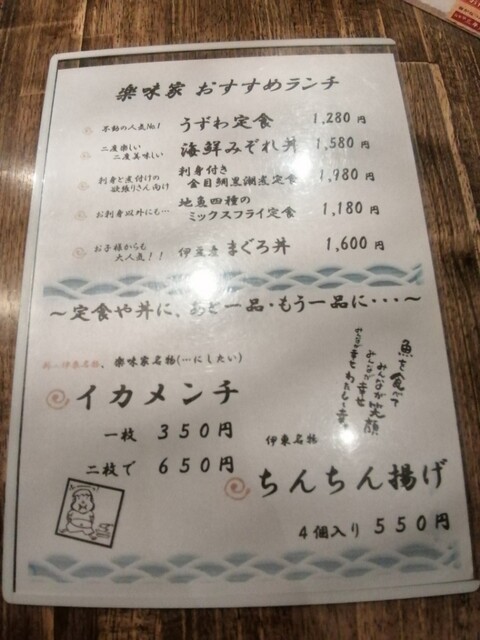 楽味家 おすすめランチ
不動の人気No.1 うずわ定食 1,280円
二度楽しい
二度美味しい 海鮮みぞれ丼 1,580円
刺身と煮付けの
欲張りさん向け 刺身付き
金目鯛黒潮煮定食 1,980円
お刺身以外にも… 地魚四種の
ミックスフライ定食 1,180円
お子様からも
大人気!! 伊豆産 まぐろ丼 1,600円
〜定食や丼に、あと一品・もう一品に・・・〜
魚を食べて
みんなが笑顔
みんなが幸せ
新・伊東名物、楽味家名物(…にしたい)
イカメンチ
一枚 350円
二枚で 650円
伊東名物
ちんちん揚げ
4個入り 550円